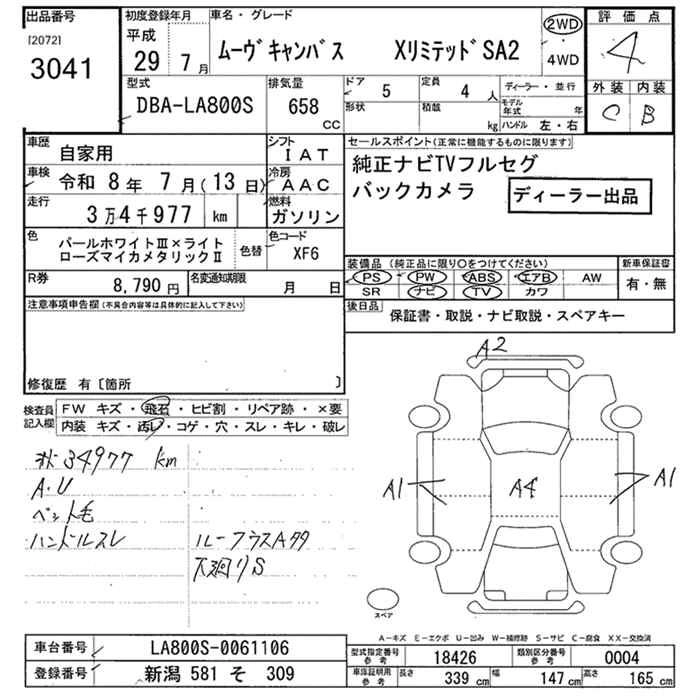 出品番号
[2072]
3041
初度登録年月
平成
29 7月
車名・グレード
ムーヴキャンバス XリミテッドSA2
2WD
4WD
評価点
4
外装 内装
C B
型式
DBA-LA800S
排気量
658
CC
ドア 5
形状
定員 4 人
積載 kg
ディーラー・並行
モデル年式 年
ハンドル 左・右
車歴 自家用
シフト IAT
車検 令和 8年 7月(13日)
冷房 AAC
走行 3万4千977 km
燃料 ガソリン
色 パールホワイトⅢ×ライト
ローズマイカメタリックⅡ
色替
色コード XF6
R券 8,790円
名変通知期限 月 日
セールスポイント(正常に機能するものに限ります)
純正ナビTVフルセグ
バックカメラ
ディーラー出品
装備品 (純正品に限り○をつけてください)
PS PW ABS エアB AW
SR ナビ TV カワ
新車保証書
有・無
後日品 保証書・取説・ナビ取説・スペアキー
注意事項申告欄(不具合内容等は具体的に記入して下さい)
修復歴 有〔箇所 〕
検査員
記入欄
FW キズ・飛石・ヒビ割・リペア跡・×要
内装 キズ・汚レ・コゲ・穴・スレ・キレ・破レ
34977 km
A・U
ペット毛
ハンドルスレ
ルーフラスAタタ
下廻りS
A2
A1
A4
A1
スペア
A-キズ E-エクボ U-凹み W-補修跡 S-サビ C-腐食 XX-交換済
車台番号 LA800S-0061106
登録番号 新潟 581 そ 309
型式指定番号
参考
18426
類別区分番号
参考
0004
車庫証明用
参考
長さ 339 cm
幅 147 cm
高さ 165 cm